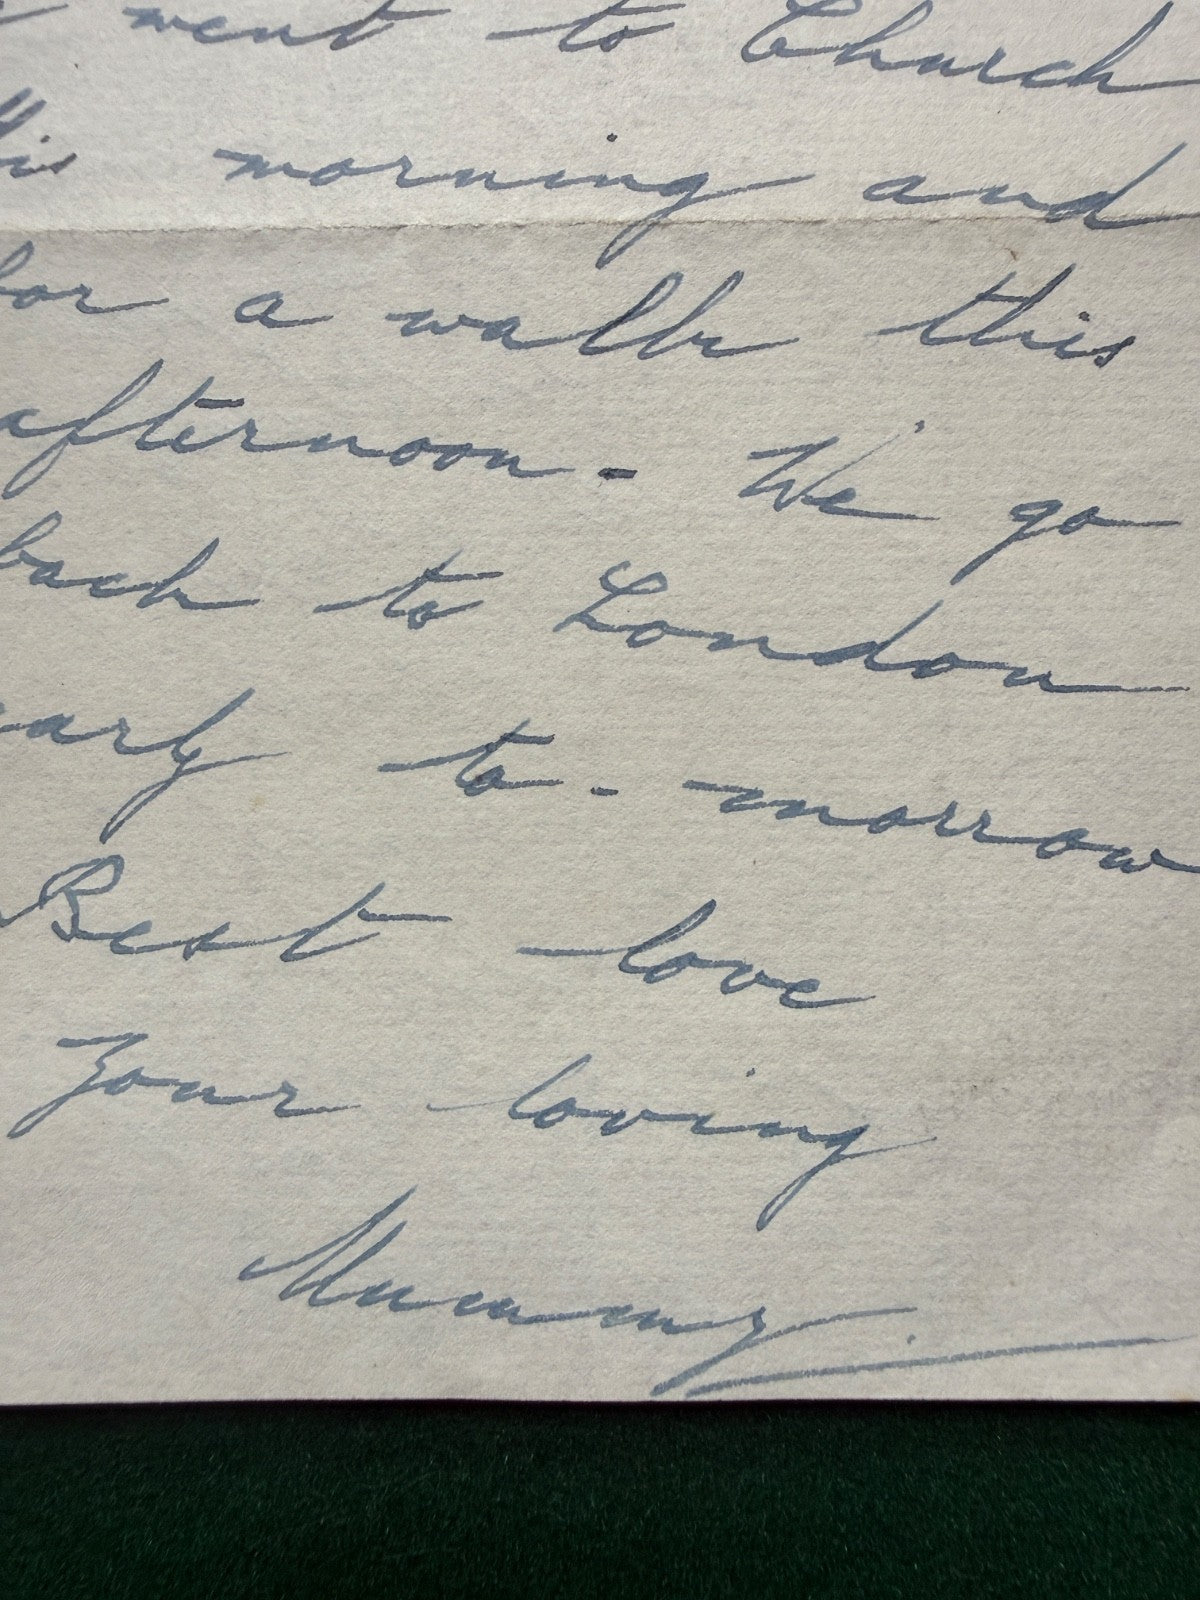 went to Church
this morning and
for a walk this
afternoon - We go
back to London
early to-morrow
Best love
Your loving
Mummy.